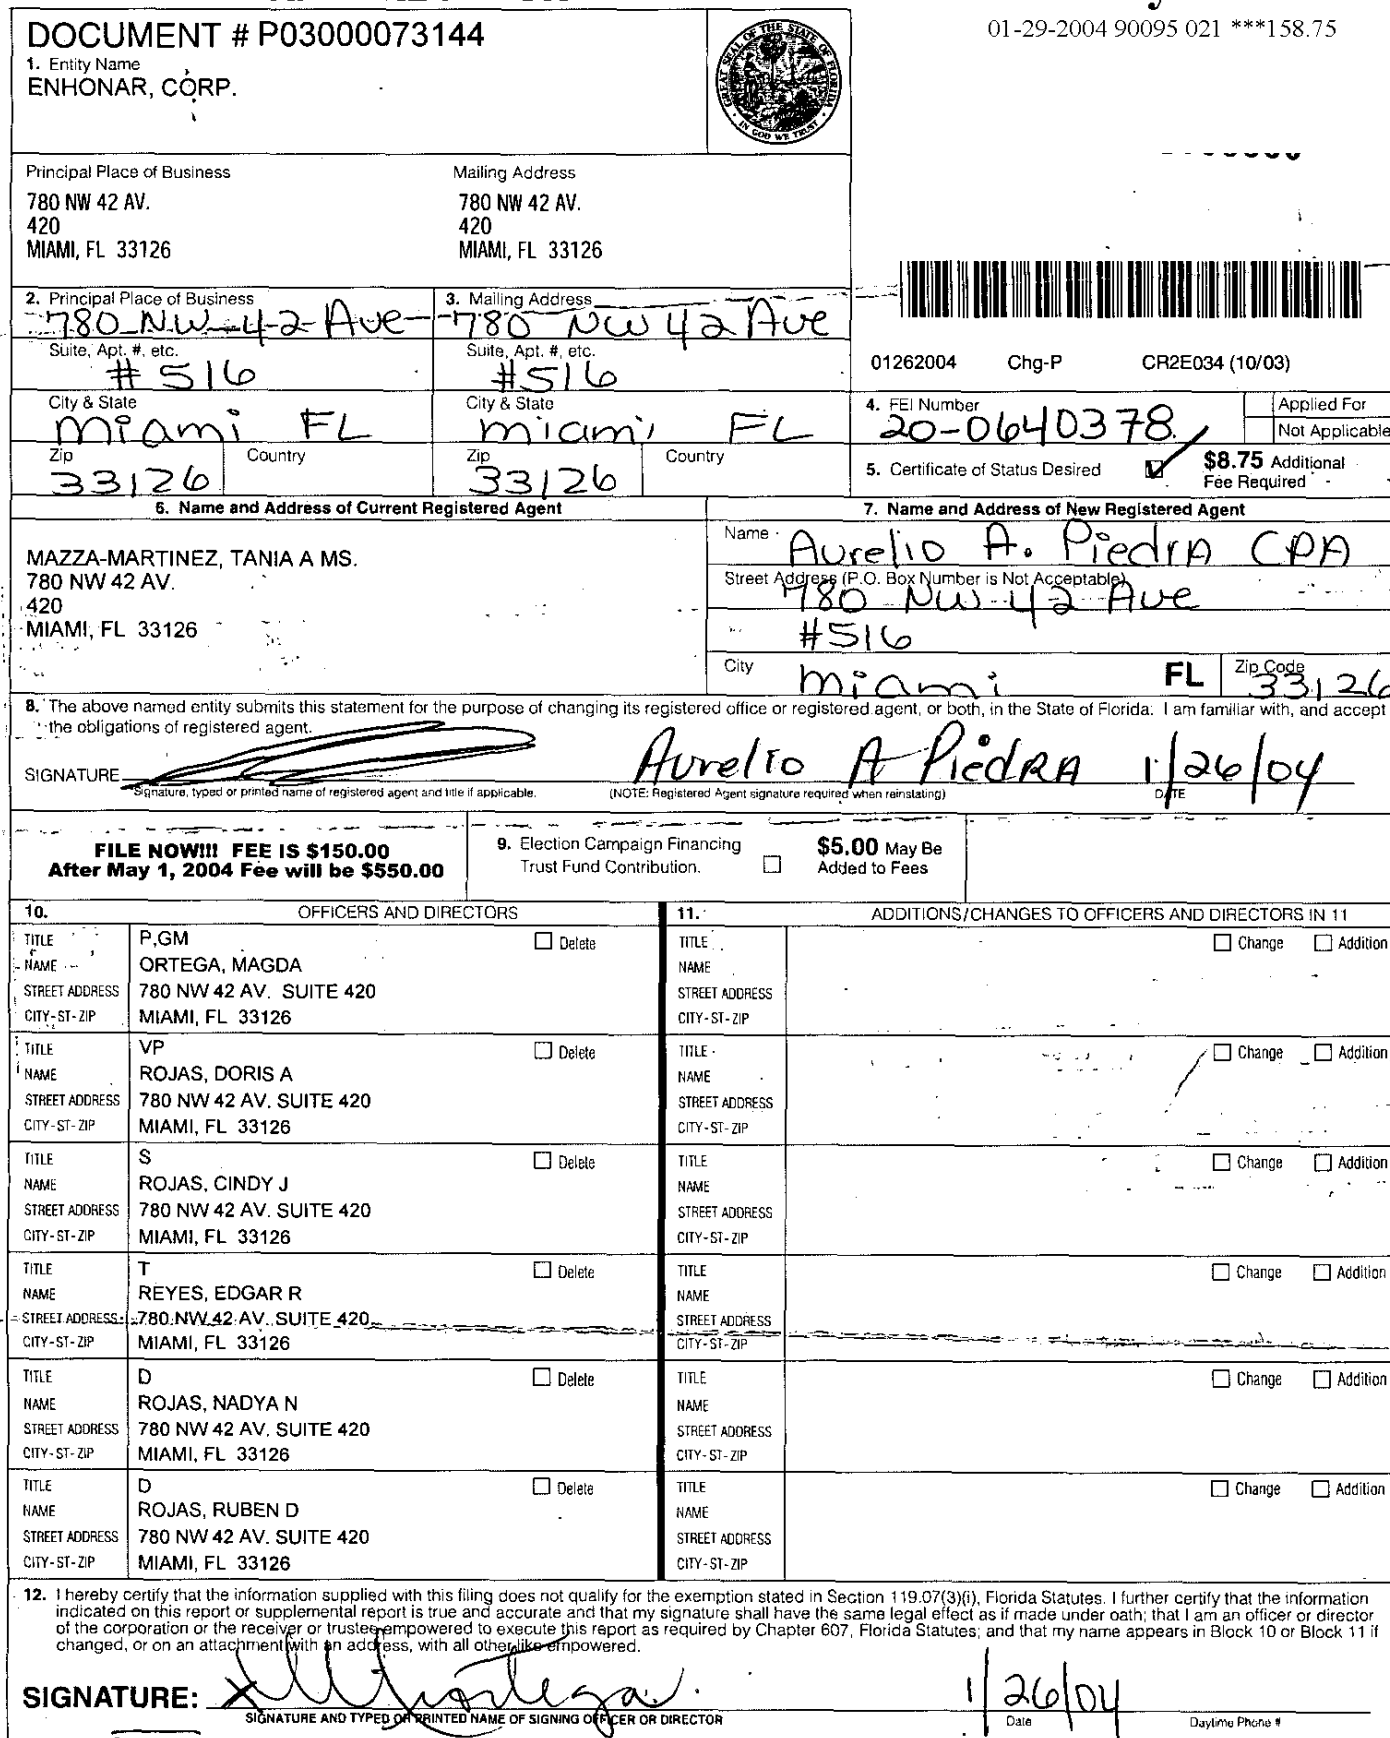 01-29-2004 90095 021 ***158.75
DOCUMENT # P03000073144
1. Entity Name
ENHONAR, CORP.
GREAT SEAL OF THE STATE OF FLORIDA
IN GOD WE TRUST
Principal Place of Business
780 NW 42 AV.
420
MIAMI, FL 33126
Mailing Address
780 NW 42 AV.
420
MIAMI, FL 33126
2. Principal Place of Business
780 NW 42 Ave
3. Mailing Address
780 NW 42 Ave
Suite, Apt. #, etc.
#516
Suite, Apt. #, etc.
#516
City & State
Miami FL
City & State
Miami FL
Zip
33126
Country
Zip
33126
Country
01262004 Chg-P CR2E034 (10/03)
4. FEI Number
20-0640378
Applied For
Not Applicable
5. Certificate of Status Desired
$8.75 Additional
Fee Required
6. Name and Address of Current Registered Agent
MAZZA-MARTINEZ, TANIA A MS.
780 NW 42 AV.
420
MIAMI, FL 33126
7. Name and Address of New Registered Agent
Name
Aurelio A. Piedra CPA
Street Address (P.O. Box Number is Not Acceptable)
780 NW 42 Ave
#516
City
Miami
FL
Zip Code
33126
8. The above named entity submits this statement for the purpose of changing its registered office or registered agent, or both, in the State of Florida. I am familiar with, and accept
the obligations of registered agent.
SIGNATURE
Aurelio A Piedra 1/26/04
Signature, typed or printed name of registered agent and title if applicable.
(NOTE: Registered Agent signature required when reinstating)
DATE
FILE NOW!!! FEE IS $150.00
After May 1, 2004 Fee will be $550.00
9. Election Campaign Financing
Trust Fund Contribution.
$5.00 May Be
Added to Fees
10. OFFICERS AND DIRECTORS
11. ADDITIONS/CHANGES TO OFFICERS AND DIRECTORS IN 11
TITLE P,GM Delete
NAME ORTEGA, MAGDA
STREET ADDRESS 780 NW 42 AV. SUITE 420
CITY-ST-ZIP MIAMI, FL 33126
TITLE Change Addition
NAME
STREET ADDRESS
CITY-ST-ZIP
TITLE VP Delete
NAME ROJAS, DORIS A
STREET ADDRESS 780 NW 42 AV. SUITE 420
CITY-ST-ZIP MIAMI, FL 33126
TITLE Change Addition
NAME
STREET ADDRESS
CITY-ST-ZIP
TITLE S Delete
NAME ROJAS, CINDY J
STREET ADDRESS 780 NW 42 AV. SUITE 420
CITY-ST-ZIP MIAMI, FL 33126
TITLE Change Addition
NAME
STREET ADDRESS
CITY-ST-ZIP
TITLE T Delete
NAME REYES, EDGAR R
STREET ADDRESS 780 NW 42 AV. SUITE 420
CITY-ST-ZIP MIAMI, FL 33126
TITLE Change Addition
NAME
STREET ADDRESS
CITY-ST-ZIP
TITLE D Delete
NAME ROJAS, NADYA N
STREET ADDRESS 780 NW 42 AV. SUITE 420
CITY-ST-ZIP MIAMI, FL 33126
TITLE Change Addition
NAME
STREET ADDRESS
CITY-ST-ZIP
TITLE D Delete
NAME ROJAS, RUBEN D
STREET ADDRESS 780 NW 42 AV. SUITE 420
CITY-ST-ZIP MIAMI, FL 33126
TITLE Change Addition
NAME
STREET ADDRESS
CITY-ST-ZIP
12. I hereby certify that the information supplied with this filing does not qualify for the exemption stated in Section 119.07(3)(i), Florida Statutes. I further certify that the information
indicated on this report or supplemental report is true and accurate and that my signature shall have the same legal effect as if made under oath; that I am an officer or director
of the corporation or the receiver or trustee empowered to execute this report as required by Chapter 607, Florida Statutes; and that my name appears in Block 10 or Block 11 if
changed, or on an attachment with an address, with all other like empowered.
SIGNATURE:
1/26/04
SIGNATURE AND TYPED OR PRINTED NAME OF SIGNING OFFICER OR DIRECTOR
Date
Daytime Phone #